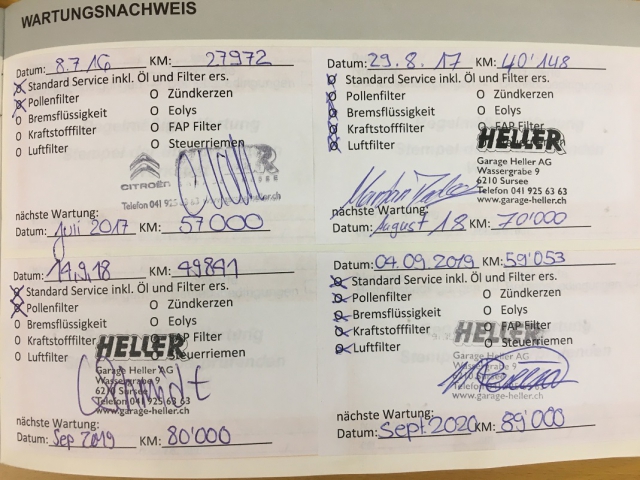 WARTUNGSNACHWEIS
Datum: 8.7.16 KM: 27972
Standard Service inkl. Öl und Filter ers.
Pollenfilter O Zündkerzen
Bremsflüssigkeit O Eolys
Kraftstofffilter O FAP Filter
Luftfilter O Steuerriemen
CITROËN
Telefon 041 925 63 63
nächste Wartung:
Datum: Juli 2017 KM: 57000
Datum: 29.8.17 KM: 40'148
Standard Service inkl. Öl und Filter ers.
Pollenfilter O Zündkerzen
Bremsflüssigkeit O Eolys
Kraftstofffilter O FAP Filter
Luftfilter
HELLER
Garage Heller AG
Wassergrabe 9
6210 Sursee
Telefon 041 925 63 63
www.garage-heller.ch
nächste Wartung:
Datum: August 18 KM: 70'000
Datum: 14.9.18 KM: 49841
Standard Service inkl. Öl und Filter ers.
Pollenfilter O Zündkerzen
O Bremsflüssigkeit O Eolys
O Kraftstofffilter FAP Filter
O Luftfilter Steuerriemen
HELLER
Garage Heller AG
Wassergrabe 9
6210 Sursee
Telefon 041 925 63 63
www.garage-heller.ch
nächste Wartung:
Datum: Sep 2019 KM: 80'000
Datum: 04.09.2019 KM: 59'053
Standard Service inkl. Öl und Filter ers.
Pollenfilter O Zündkerzen
Bremsflüssigkeit O Eolys
Kraftstofffilter FAP Filter
Luftfilter Steuerriemen
HELLER
Garage Heller AG
Wassergrabe 9
6210 Sursee
www.garage-heller.ch
nächste Wartung:
Datum: Sept. 2020 KM: 89'000